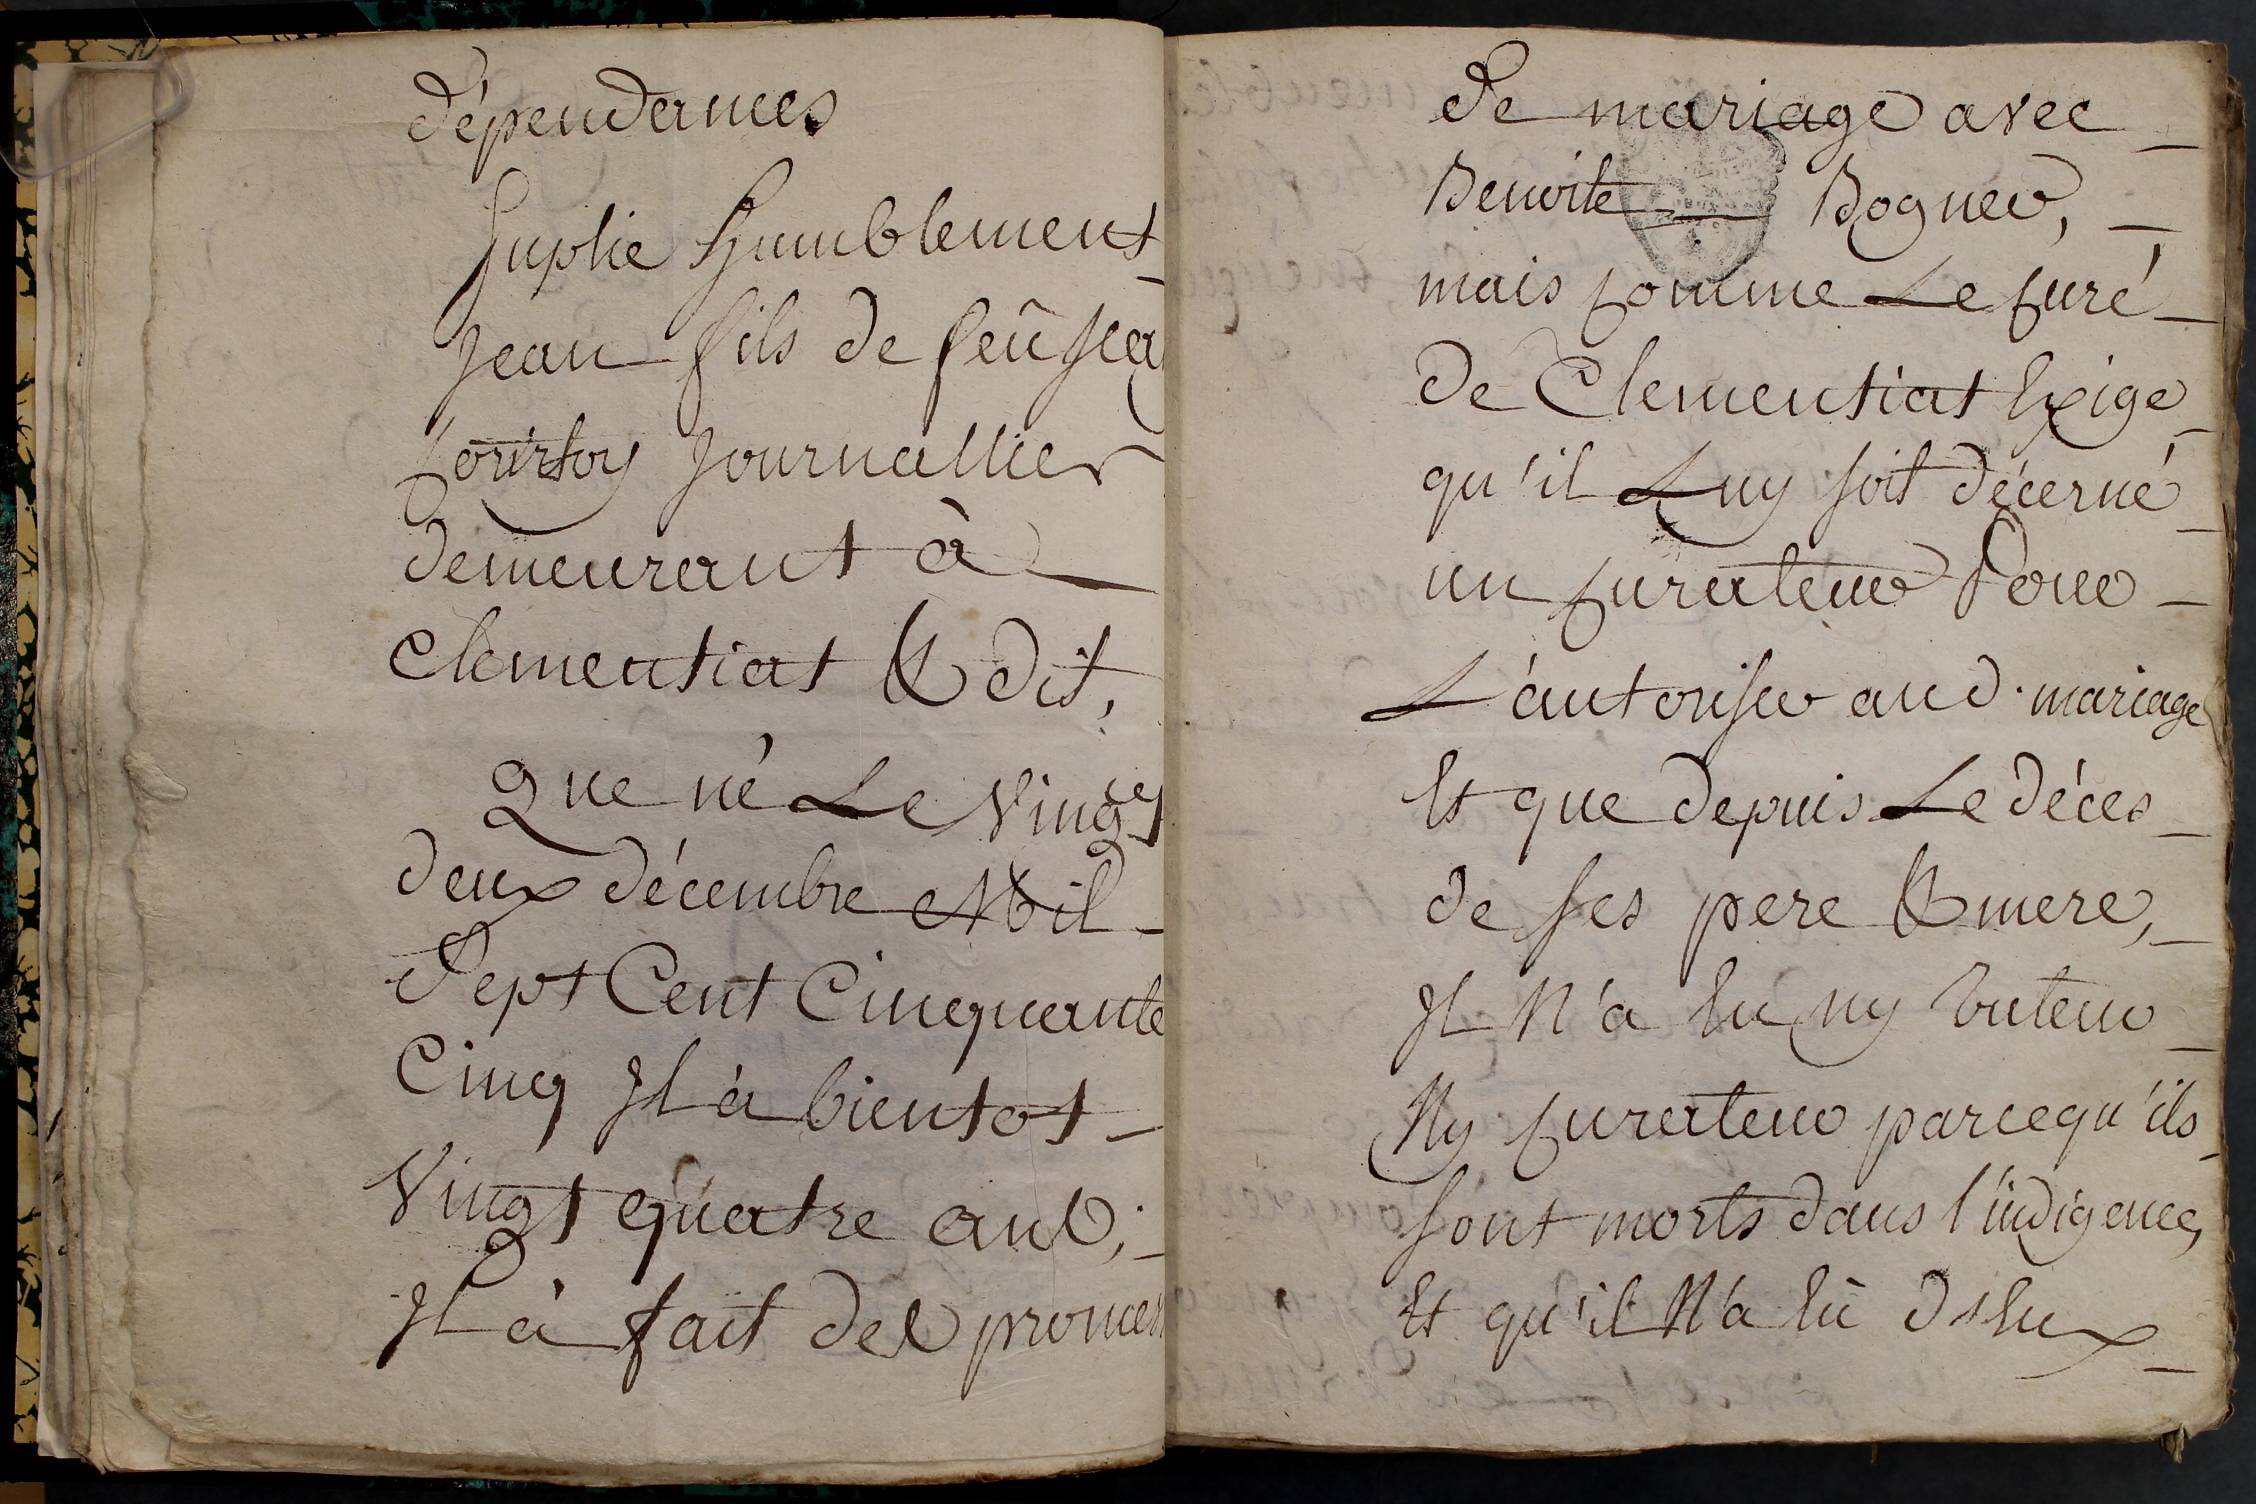 dépendances
Suplie humblement
Jean fils de feû Jean
journallier
demeurant à
Clementiat & dit,
Que né Le Vingt
deux décembre Mil
Sept Cent Cinquante
Cinq Il à bientot
Vingt quatre ans;
Il à fait des promes
de mariage avec
Benoite Boguer,
mais comme Le curé
de Clementiat Exige
qu'il Luy soit décerné
un curateur Pour
L'autoriser aud. mariage
Et que depuis Le déces
de ses pere & mere,
Il N'a Eu ny tuteur
Ny curateur parcequ'ils
sont morts dans l'indigence,
Et qu'il N'a Eû d'Eux